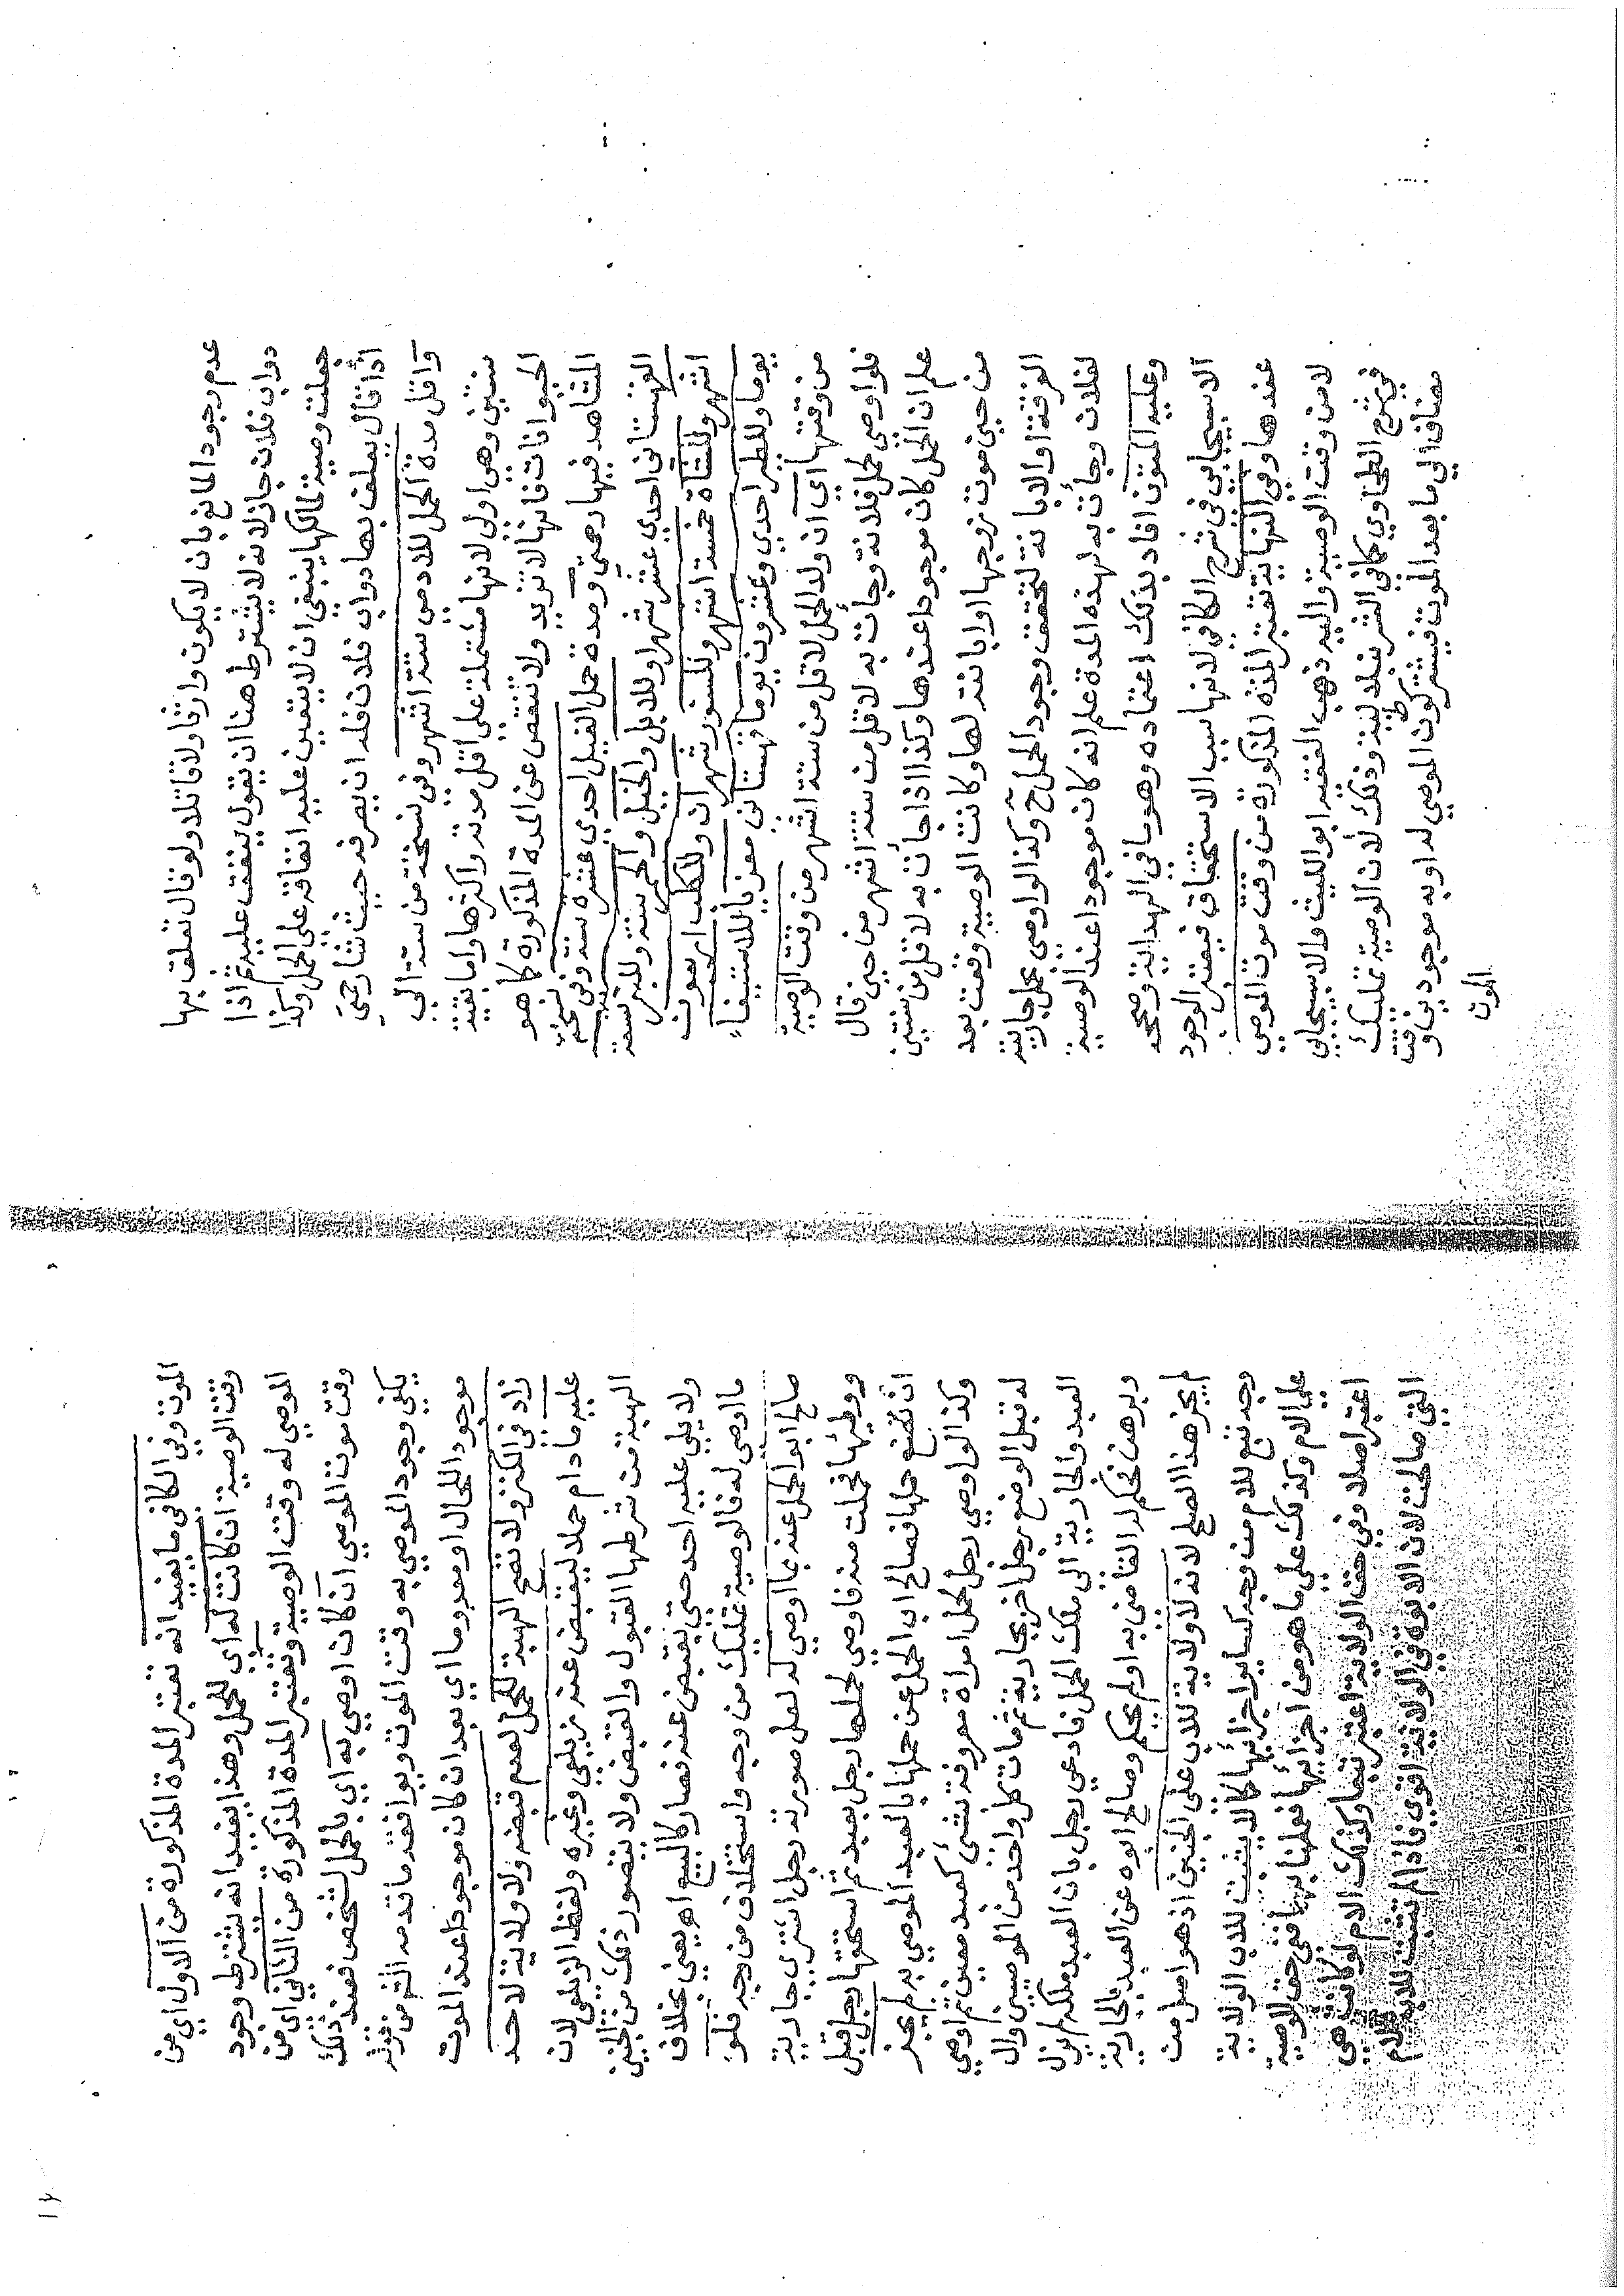 عدم وجود المانع بان لا يكون وارثا ولا قاتلا ولو قال تعلف بها
دواب فلان جاز لانه لا يشترط هنا ان يقول ينفق عليه ثم اذا
جعلت وصية لمالكها ينبغي ان لا يتعين عليه انفاقه على الحمل وكذا
اذا قال يعلف بها دواب فلان فله ان يصرفه حيث شاء رحمتي
واقل مدة الحمل للادمي ستة اشهر وفي نسخة من ستة الى
سنتين وهي اولى لانها مشتملة على اقل مدته واكثرها واما بقية
الحيوانات فانها لا تزيد ولا تنقص عن المدة المذكورة كما هو
المشاهد فيها رحمتي ومدة حمل الفيل احدى عشرة سنة وفي نسخة
القهستاني احدى عشر شهرا وللابل والخيل والحمر سنة وللبقر تسعة
اشهر وللشاة خمسة اشهر وللسنور شهران وللكلب اربعون
يوما وللطير احدى وعشرون يوما قهستاني معزيا للاستيفاء
من وقتها اي ان ولد الحمل لاقل من ستة اشهر من وقت الوصية
فلو اوصى لحمل فلانة وجأت به لاقل من ستة اشهر من حين قال
علم ان الحمل كان موجودا عندها وكذا اذا جأت به لاقل من سنتين
من حين موت زوجها او ابانته لها وكانت الوصية وقعت بعد
الفرقة او الابانة لتحقق وجود الحمل ح وكذا لو اوصى بحمل جاريته
لفلان وجأت به لهذه المدة علم انه كان موجودا عند الوصية
وعليه المتون افاد بذلك اعتماده وهو ما في الهداية وصححه
الاسبيجابي في شرح الكافي لانها سبب الاستحقاق فيعتبر الوجود
عندها وفي النهاية تعتبر المدة المذكورة من وقت موت الموصي
لا من وقت الوصية واليه ذهب الفقيه ابو الليث والاسبيجابي
في شرح الطحاوي كما في الشرنبلالية وذلك لان الوصية تمليك
مضاف الى ما بعد الموت فيشترط كون الموصى له او به موجودين وقت
الموت
الموت وفي الكافي ما يفيد انه تعتبر المدة المذكورة من الاول اي من
وقت الوصية ان كانت له اي للحمل وهذا يفيد انه يشترط وجود
الموصى له وقت الوصية وتعتبر المدة المذكورة من الثاني اي من
وقت موت الموصي ان كان اوصى به اي بالحمل لشخص فعند ذلك
يكفي وجود الموصى به وقت الموت ويوافقه ما قدمه الشر من قوله
موجود اللحال او معدوما اي بعد ان كان موجودا عند الموت
زاد في الكنز ولا تصح الهبة للحمل لعدم قبضه ولا ولاية لاحد
عليه ما دام حملا ليقبض عنه زيلعي وغيره ولفظ الزيلعي لان
الهبة من شرطها القبول والقبض ولا يتصور ذلك من الجنين
ولا يلي عليه احد حتى يقبض عنه فصار كالبيع اه يعني بخلاف
ما اوصى له فالوصية تمليك من وجه واستخلاف من وجه فلو
صالح ابو الحمل عنه بما اوصى له لعل صورته رجل اشترى جارية
ووطئها فحملت منه فاوصى لحملها رجل بعبد ثم استحقها رجل قبل
ان تضع حملها فصالح اب الحمل عن حملها بالعبد الموصى به لم يجز
وكذا لو اوصى رجل لحمل امراة معروفة بشئ كعبد معين ثم اوصى
له قبل الوضع رجل اخر بجارية ثم مات كل واحد من الموصيين وال
العبد والجارية الى ملك الحمل فادعى رجل بان العبد ملكه لم يزل
وبرهن فحكم له القاضي به او لم يحكم وصالح ابوه عن العبد بالجارية
لم يجز هذا الصلح لانه لا ولاية للاب على الجنين اذ هو اصل من
وجه تبع للام من وجه كساير اجزائها كما لا يثبت للاب الولاية
على الام وكذلك على ما هو من اجزائها فعلمنا بهما ففي حق الوصية
اعتبر اصلا وفي حق الولاية اعتبر تبعا وكذلك الام لو كانت هي
التي صالحت لان الابوة في الولاية اقوى فاذا لم تثبت للاب فللام
١٢